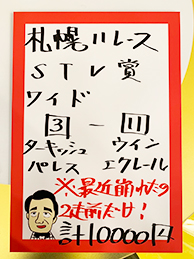 札幌11レース
STV賞
ワイド
3 - 11
ターキッシュ ウイン
パレス エクレール
※最近崩れたの
2走前だけ!
計10000円